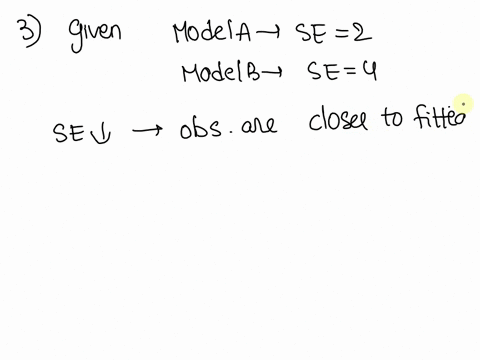 3) given Model A → SE = 2
Model B → SE = 4
SE ↓ → obs. are closer to fitted